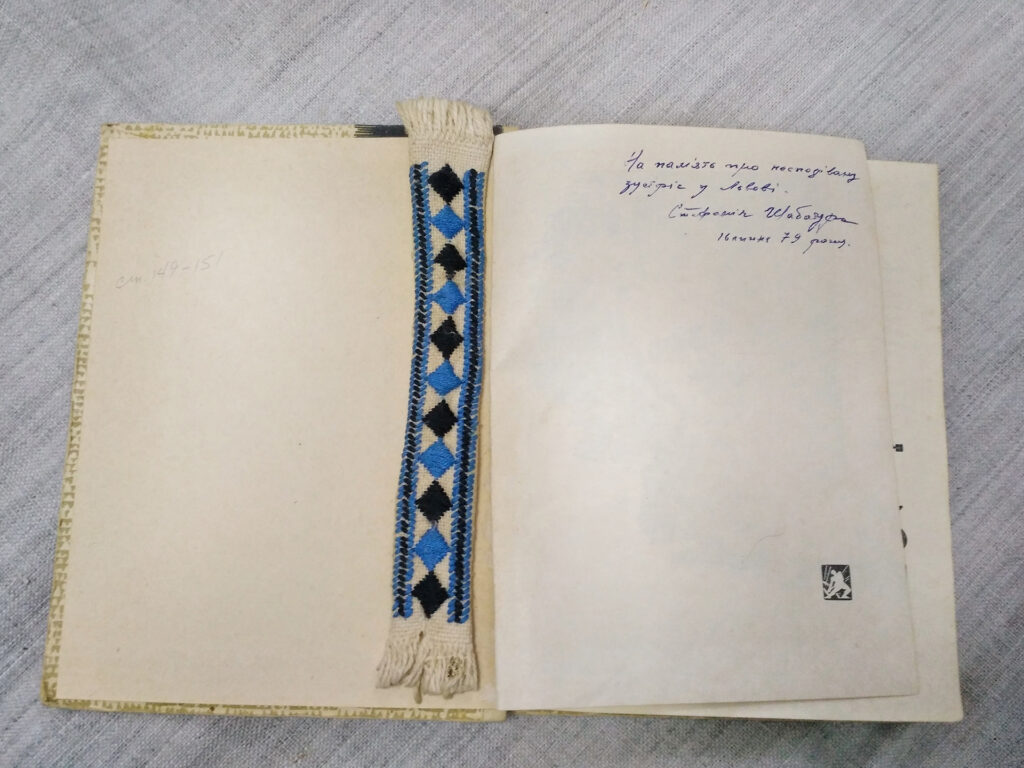 ст. 149-151
На пам'ять про несподівану
зустріч у Львові.
Стефанія Шабатура
79 року.